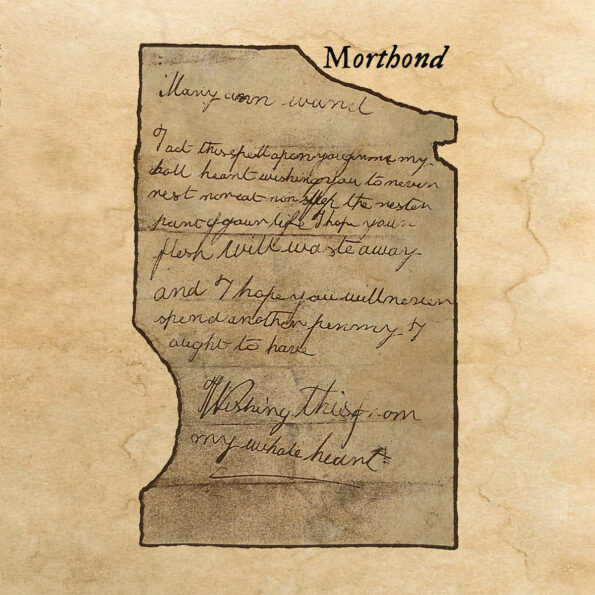 Morthond
Mary ann ward
I act this spell apon you from my
holl heart wishing you to never
rest nor eat nor sleep the resten
part of your life I hope your
flesh will waste away
and I hope you will never
spend another penny I
aught to have
Wishing this from
my whole heart